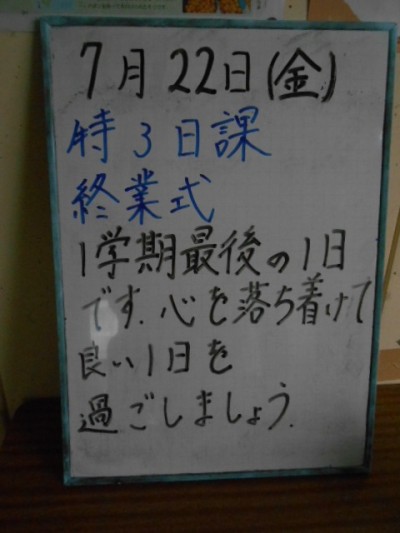 7月22日(金)
特3日課
終業式
1学期最後の1日
です.心を落ち着けて
良い1日を
過ごしましょう.